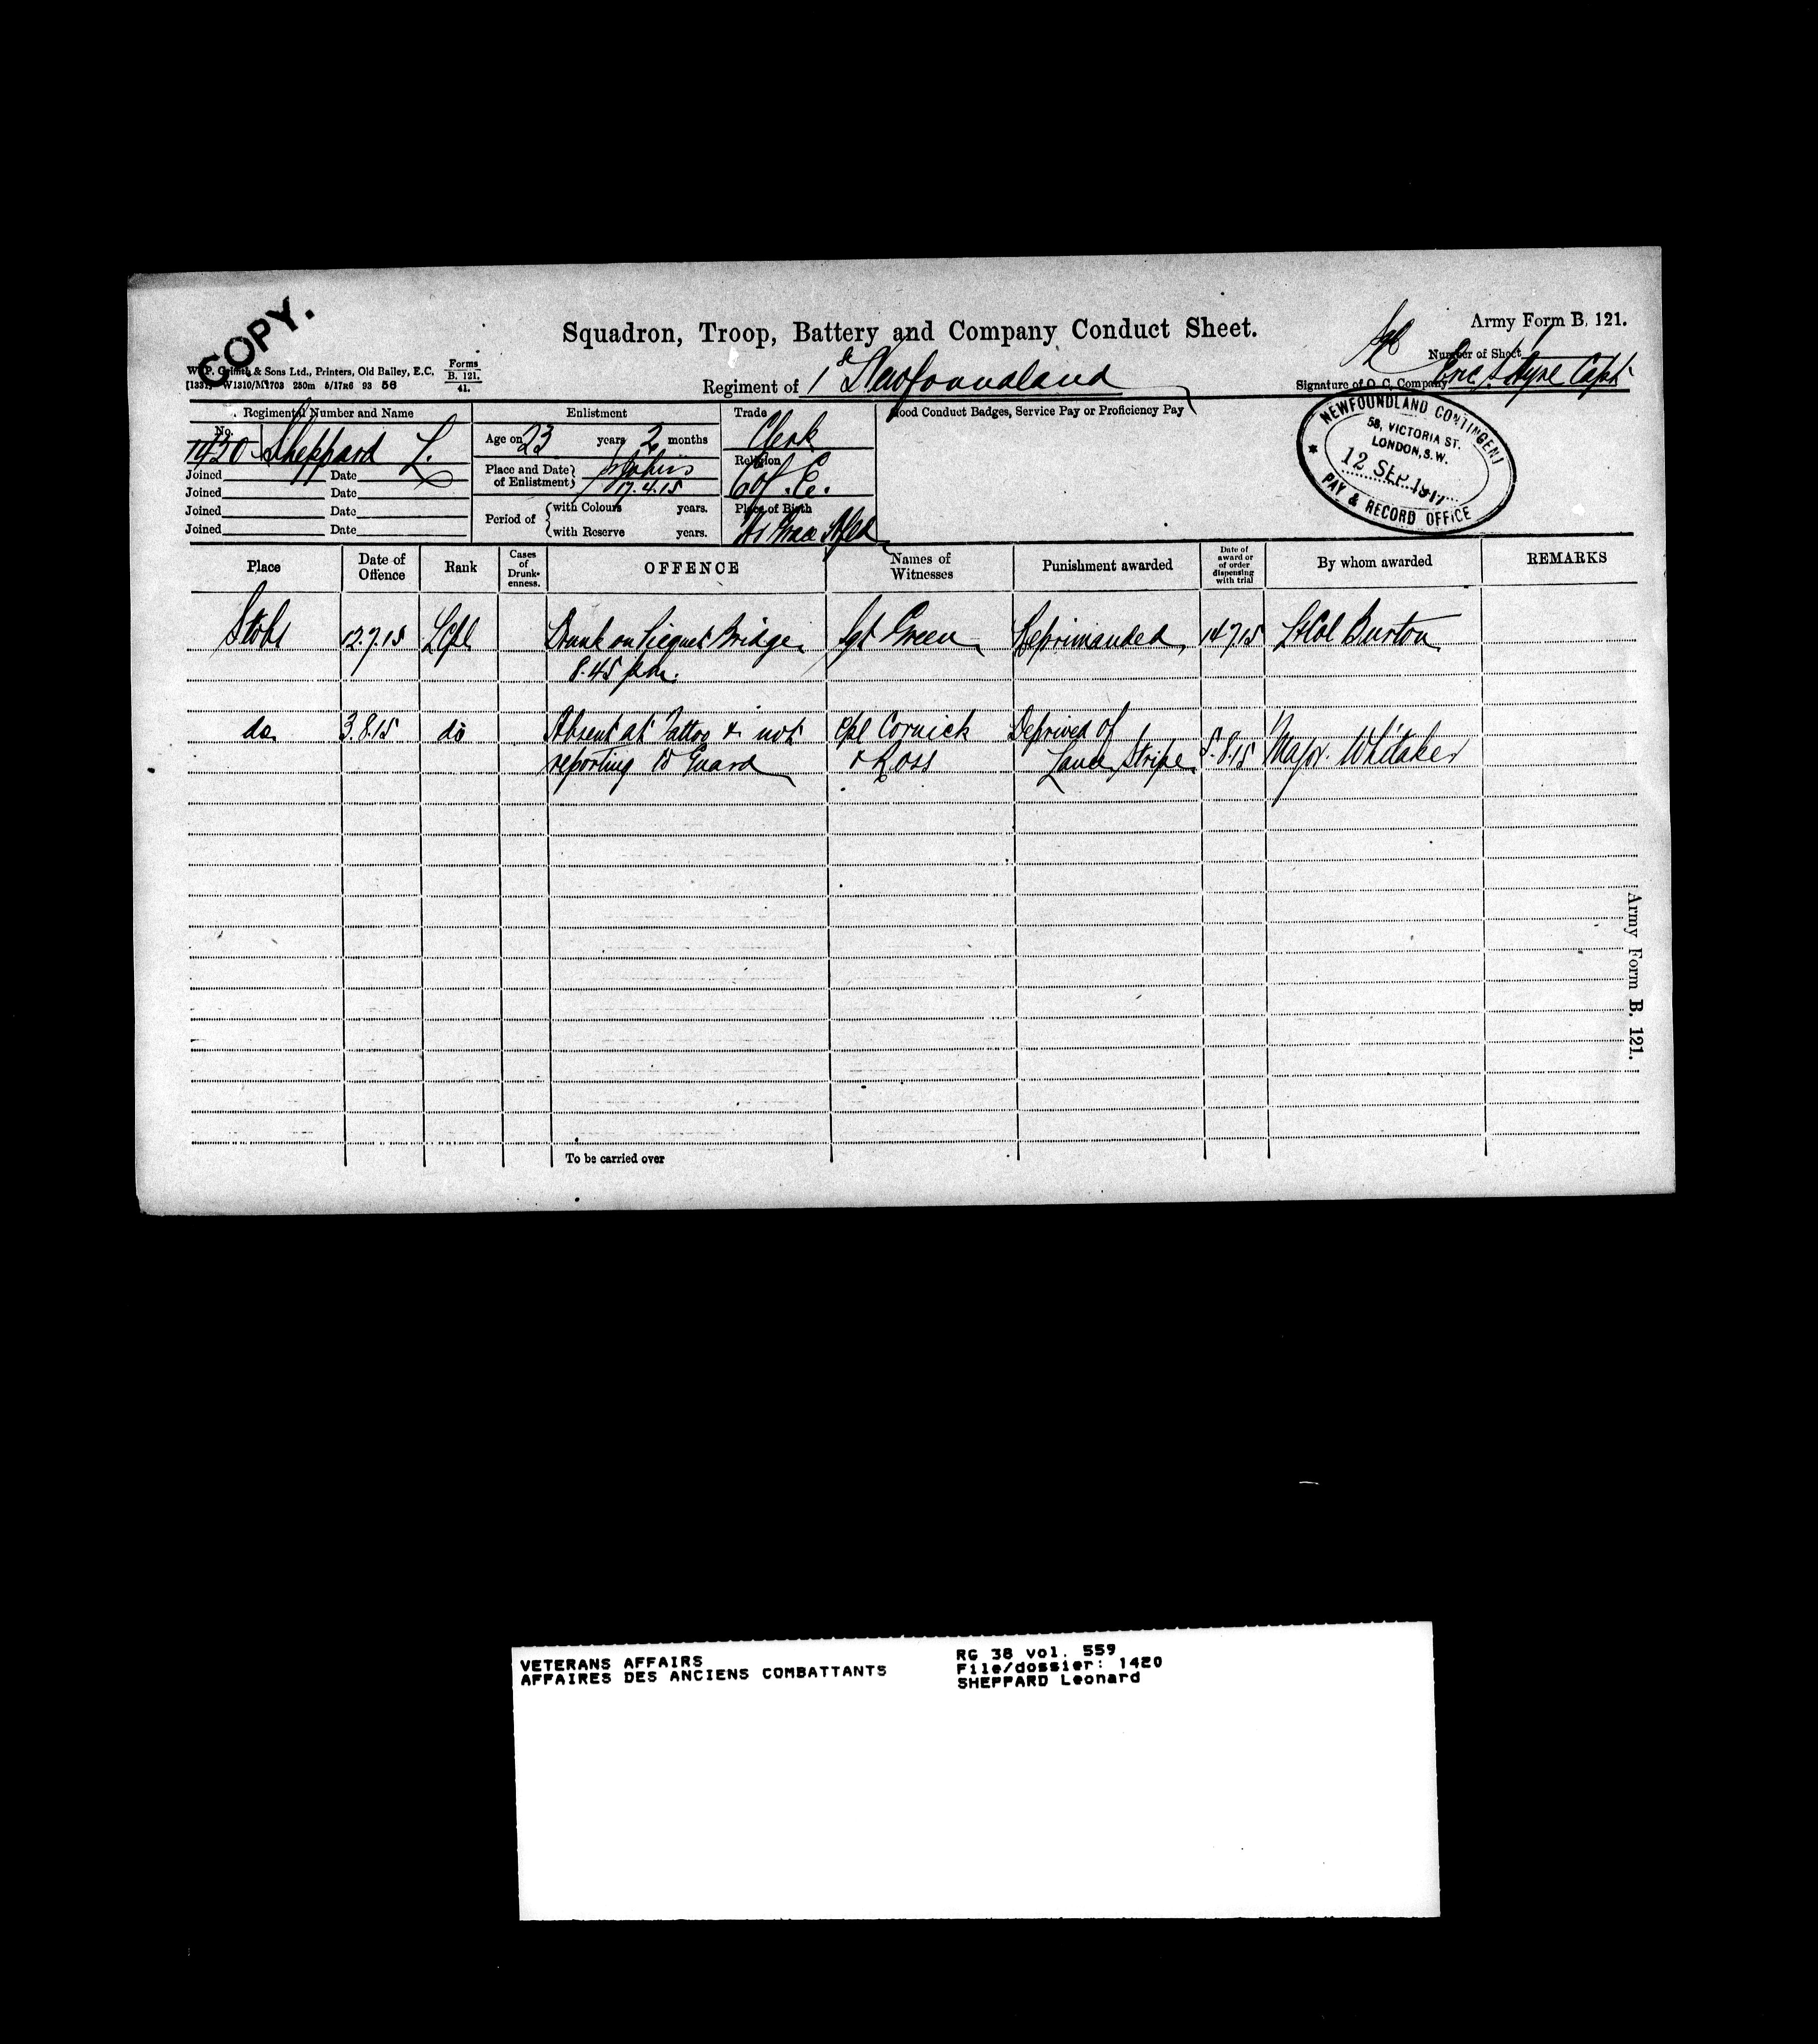 COPY.
Squadron, Troop, Battery and Company Conduct Sheet.
Army Form B. 121.
Number of Sheet
W. P. Griffith & Sons Ltd., Printers, Old Bailey, E.C.
Forms B. 121. 41.
[1331] W1310/M1703 250m 5/17 R6 93 56
Regiment of 1st Newfoundland
Signature of O. C. Company Eric S Ayre Capt
Regimental Number and Name
Enlistment
Trade
Good Conduct Badges, Service Pay or Proficiency Pay
No. Sheppard L.
Age on 23 years 2 months
Clerk
Place and Date of Enlistment St Johns 17.4.15
Religion
C of E.
Joined Date
Joined Date
Joined Date
Joined Date
Period of with Colours years.
with Reserve years.
Place of Birth
Hr Grace Nfld
NEWFOUNDLAND CONTINGENT
58, VICTORIA ST.
LONDON, S.W.
12 SEP. 1917
PAY & RECORD OFFICE
Place Date of Offence Rank Cases of Drunk-enness. OFFENCE Names of Witnesses Punishment awarded Date of award or of order dispensing with trial By whom awarded REMARKS
Stobs 12.7.15 LCpl Drunk on Picquet Bridge Sgt Green Reprimanded 14.7.15 Lt Col Burton
8.45 pm.
do. 3.8.15 do Absent at Tattoo & not Cpl Cornick Deprived of
reporting to Guard & Ross Lance Stripe 5.8.15 Major Whitaker
To be carried over
Army Form B. 121.
VETERANS AFFAIRS
AFFAIRES DES ANCIENS COMBATTANTS
RG 38 vol. 559
File/dossier: 1420
SHEPPARD Leonard